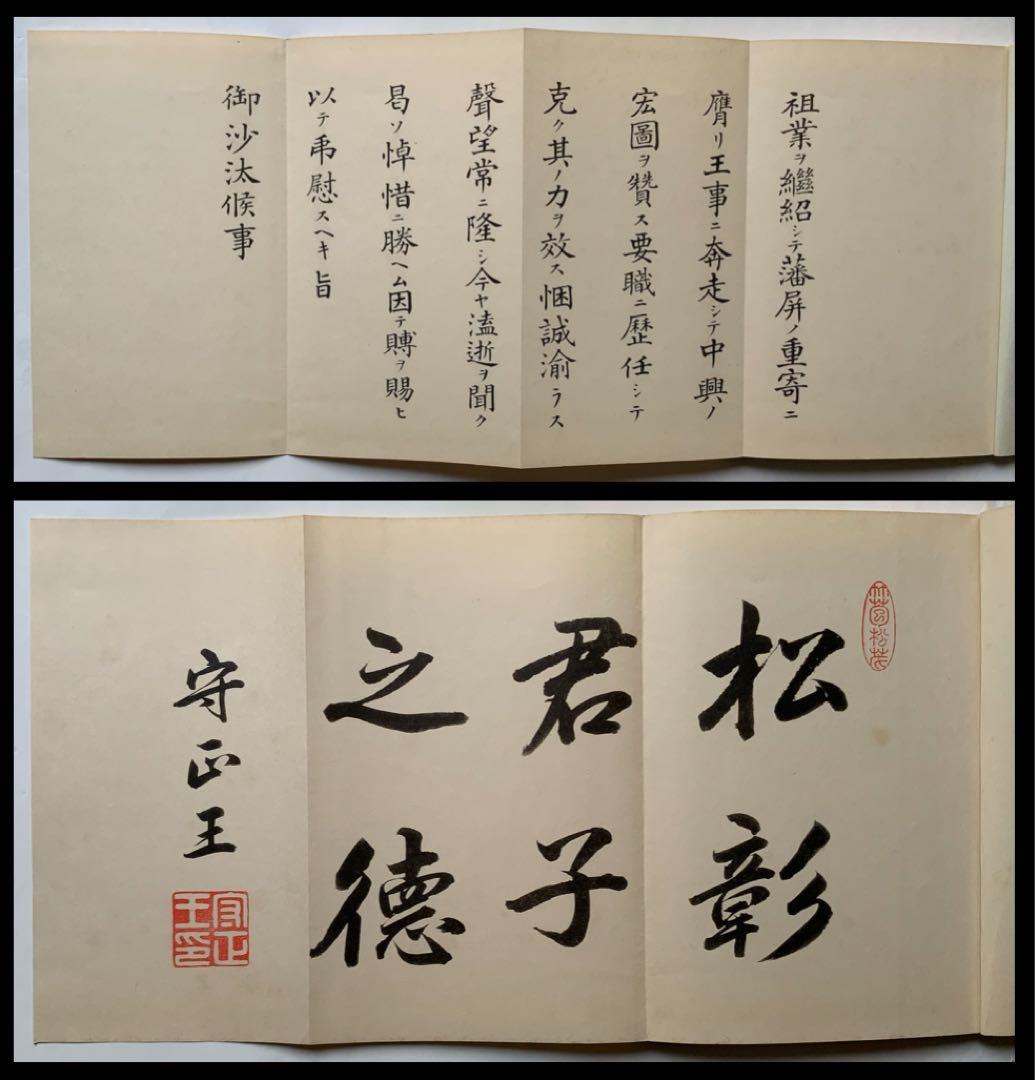 祖業ヲ繼紹シテ藩屏ノ重寄ニ
膺リ王事ニ奔走シテ中興ノ
宏圖ヲ贊ス要職ニ歴任シテ
克ク其ノ力ヲ效ス悃誠渝ラス
聲望常ニ隆シ今ヤ溘逝ヲ聞ク
曷ソ悼惜ニ勝ヘム因テ賻ヲ賜ヒ
以テ弔慰スヘキ旨
御沙汰候事
竹苞松茂
松彰
君子
之德
守正王
守正王印